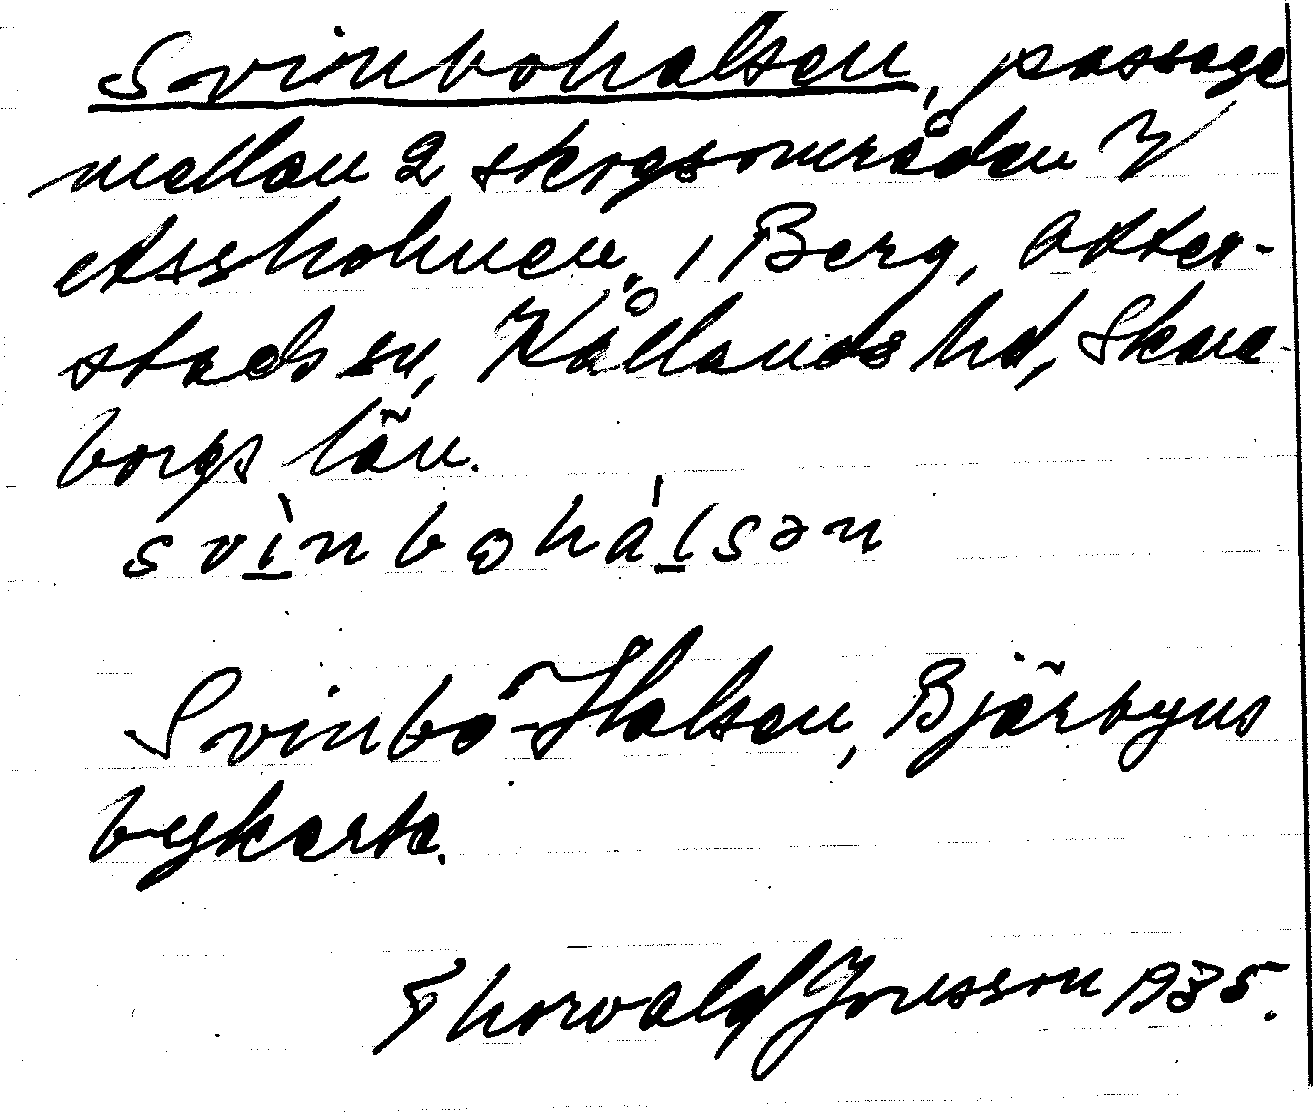 Svinbohalsen, passage
mellan 2 skogsområden V
Assholmen, i Berg, Otter-
stads sn, Kållands hd, Skara-
borgs län.
svìnbohálsən
Svinbo-Halsen, Bjärbyns
bykarta.
Thorvald Jonsson 1935.